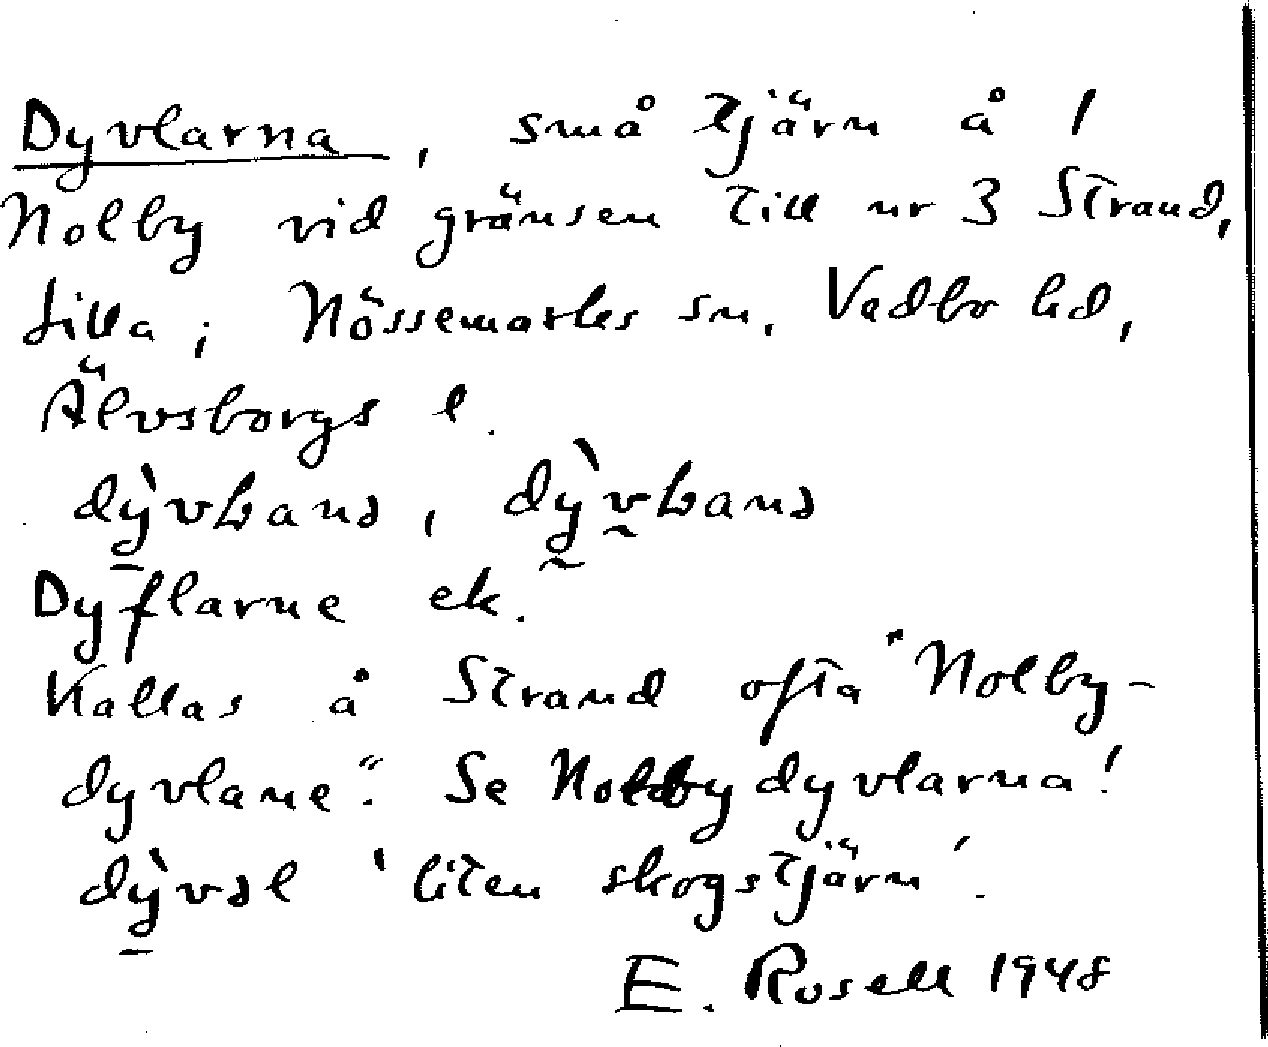 Dyvlarna, små tjärn å 1
Nolby vid gränsen till nr 3 Strand,
Lilla; Nössemarks sn, Vedbo hd,
Älvsborgs l.
Dyflarne ek.
Kallas å Strand ofta "Nolby-
dyvlane". Se Nolbydyvlarna!
dỳvəl 'liten skogstjärn'.
E. Rosell 1948